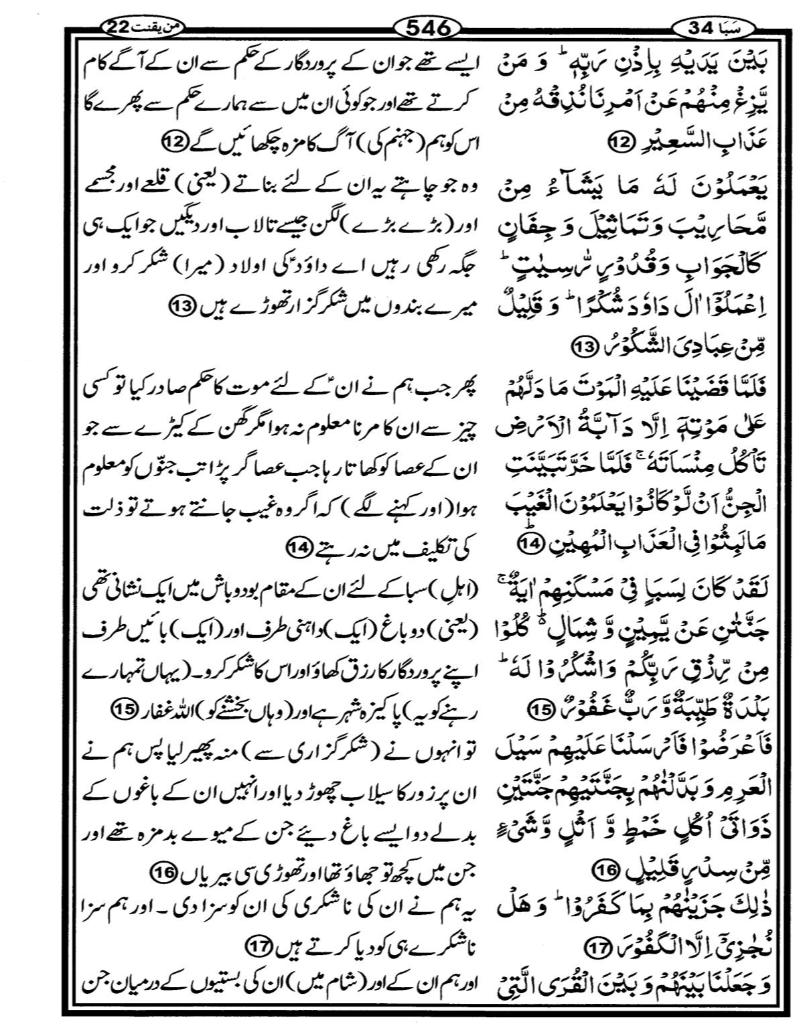 سَبَا 34
546
من یقنت 22
بَيْنَ يَدَيْهِ بِاِذْنِ رَبِّهٖ ؕ وَ مَنْ
يَّزِغْ مِنْهُمْ عَنْ اَمْرِنَا نُذِقْهُ مِنْ
عَذَابِ السَّعِيْرِ ⑫
يَعْمَلُوْنَ لَهٗ مَا يَشَآءُ مِنْ
مَّحَارِيْبَ وَ تَمَاثِيْلَ وَ جِفَانٍ
كَالْجَوَابِ وَ قُدُوْرٍ رّٰسِيٰتٍ ؕ
اِعْمَلُوْۤا اٰلَ دَاوٗدَ شُكْرًا ؕ وَ قَلِيْلٌ
مِّنْ عِبَادِيَ الشَّكُوْرُ ⑬
فَلَمَّا قَضَيْنَا عَلَيْهِ الْمَوْتَ مَا دَلَّهُمْ
عَلٰى مَوْتِهٖۤ اِلَّا دَآبَّةُ الْاَرْضِ
تَاْكُلُ مِنْسَاَتَهٗ ۚ فَلَمَّا خَرَّ تَبَيَّنَتِ
الْجِنُّ اَنْ لَّوْ كَانُوْا يَعْلَمُوْنَ الْغَيْبَ
مَا لَبِثُوْا فِى الْعَذَابِ الْمُهِيْنِ ؕ ⑭
لَقَدْ كَانَ لِسَبَاٍ فِيْ مَسْكَنِهِمْ اٰيَةٌ ۚ
جَنَّتٰنِ عَنْ يَّمِيْنٍ وَّ شِمَالٍ ؕ۬ كُلُوْا
مِنْ رِّزْقِ رَبِّكُمْ وَ اشْكُرُوْا لَهٗ ؕ
بَلْدَةٌ طَيِّبَةٌ وَّ رَبٌّ غَفُوْرٌ ⑮
فَاَعْرَضُوْا فَاَرْسَلْنَا عَلَيْهِمْ سَيْلَ
الْعَرِمِ وَ بَدَّلْنٰهُمْ بِجَنَّتَيْهِمْ جَنَّتَيْنِ
ذَوَاتَىْ اُكُلٍ خَمْطٍ وَّ اَثْلٍ وَّ شَيْءٍ
مِّنْ سِدْرٍ قَلِيْلٍ ⑯
ذٰلِكَ جَزَيْنٰهُمْ بِمَا كَفَرُوْا ؕ وَ هَلْ
نُجٰزِيْۤ اِلَّا الْكَفُوْرَ ⑰
وَ جَعَلْنَا بَيْنَهُمْ وَ بَيْنَ الْقُرَى الَّتِيْ
ایسے تھے جو ان کے پروردگار کے حکم سے ان کے آگے کام
کرتے تھے اور جو کوئی ان میں سے ہمارے حکم سے پھرے گا
اس کو ہم (جہنم کی) آگ کا مزہ چکھائیں گے ⑫
وہ جو چاہتے یہ ان کے لئے بناتے (یعنی) قلعے اور مجسمے
اور (بڑے بڑے) لگن جیسے تالاب اور دیگیں جو ایک ہی
جگہ رکھی رہیں اے داؤدؑ کی اولاد (میرا) شکر کرو اور
میرے بندوں میں شکرگزار تھوڑے ہیں ⑬
پھر جب ہم نے انؑ کے لئے موت کا حکم صادر کیا تو کسی
چیز سے ان کا مرنا معلوم نہ ہوا مگر گھن کے کیڑے سے جو
ان کے عصا کو کھاتا رہا جب عصا گر پڑا تب جنّوں کو معلوم
ہوا (اور کہنے لگے) کہ اگر وہ غیب جانتے ہوتے تو ذلت
کی تکلیف میں نہ رہتے ⑭
(اہلِ) سبا کے لئے ان کے مقام بود و باش میں ایک نشانی تھی
(یعنی) دو باغ (ایک) داہنی طرف اور (ایک) بائیں طرف
اپنے پروردگار کا رزق کھاؤ اور اس کا شکر کرو۔ (یہاں تمہارے
رہنے کو یہ) پاکیزہ شہر ہے اور (وہاں بخشنے کو) اللہ غفار ⑮
تو انہوں نے (شکرگزاری سے) منہ پھیر لیا پس ہم نے
ان پر زور کا سیلاب چھوڑ دیا اور انہیں ان کے باغوں کے
بدلے دو ایسے باغ دیئے جن کے میوے بدمزہ تھے اور
جن میں کچھ تو جھاؤ تھا اور تھوڑی سی بیریاں ⑯
یہ ہم نے ان کی ناشکری کی ان کو سزا دی ۔ اور ہم سزا
ناشکرے ہی کو دیا کرتے ہیں ⑰
اور ہم ان کے اور (شام میں) ان کی بستیوں کے درمیان جن